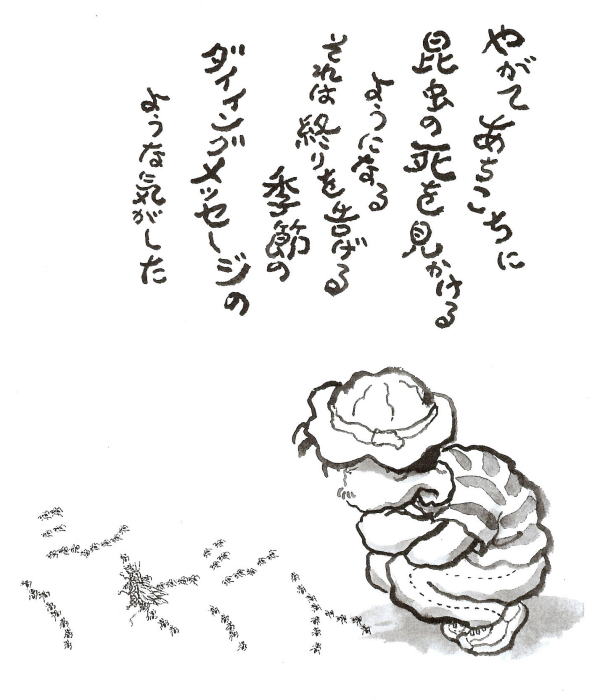 やがてあちこちに
昆虫の死を見かける
ようになる
それは終りを告げる
季節の
ダイイングメッセージの
ような気がした